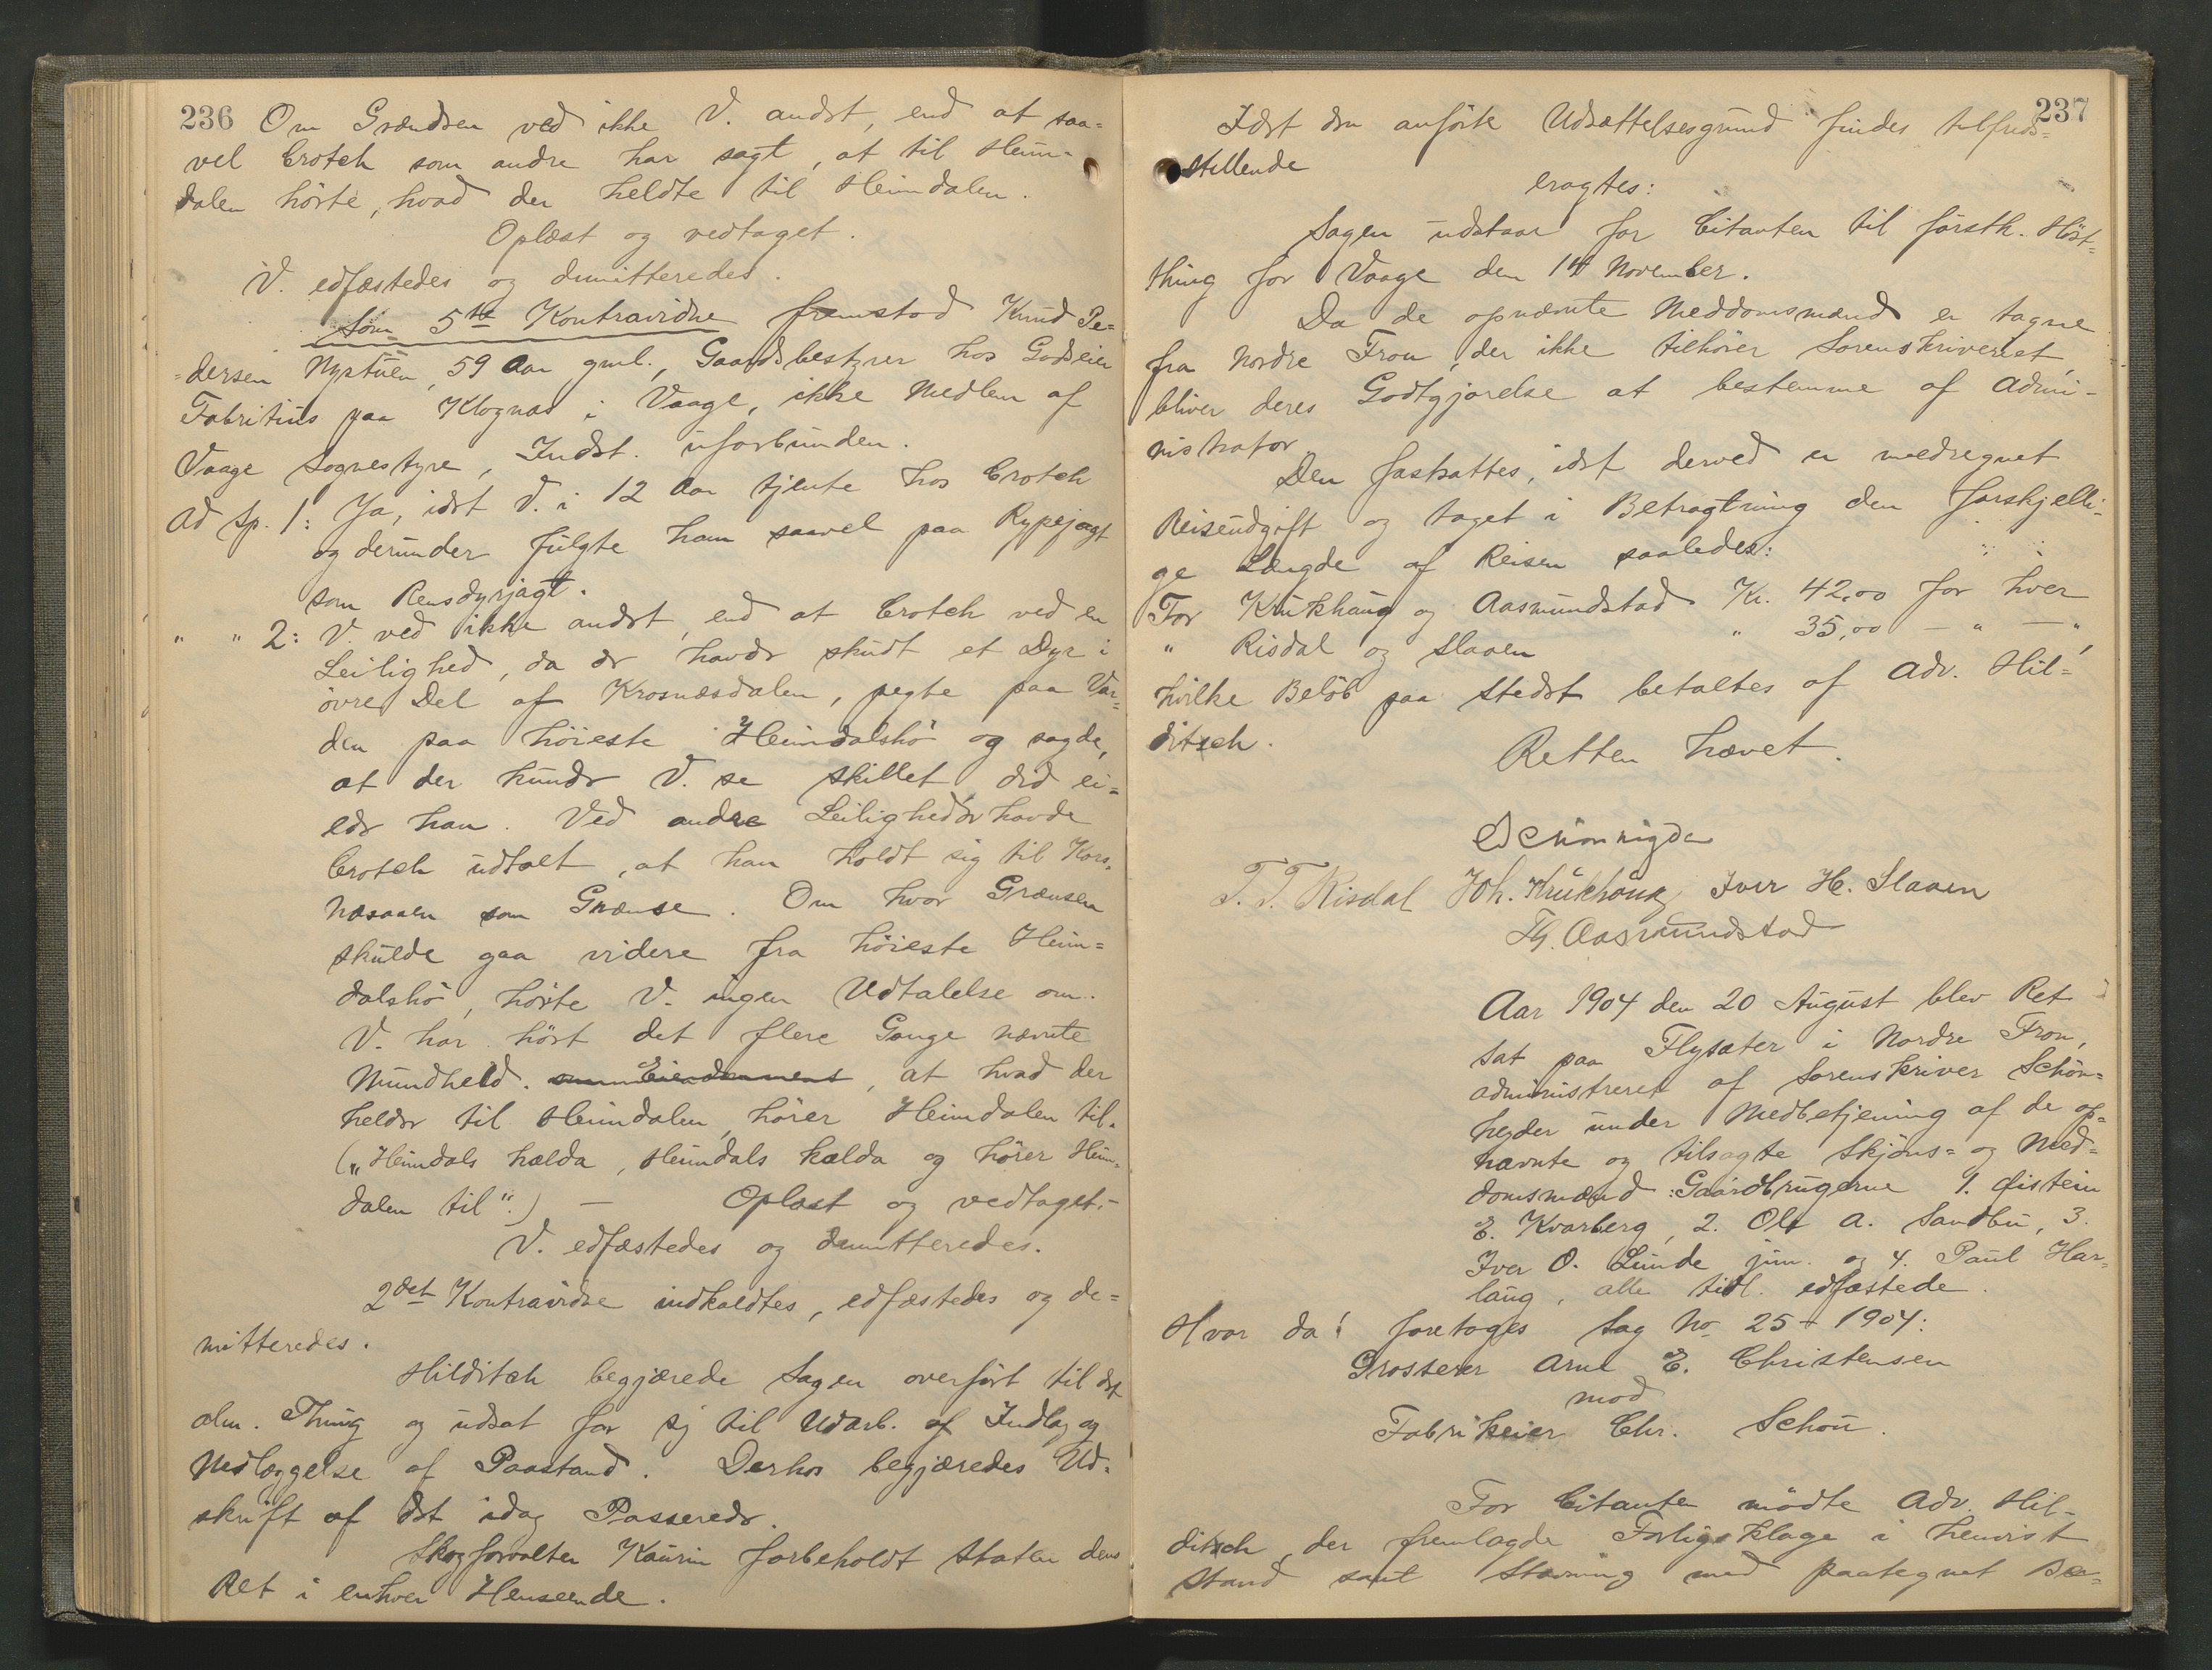 236
Om Grændsen ved ikke V. andet, end at saa=
vel Crotch som andre har sagt, at til Heim-
dalen hörte, hvad der heldte til Heimdalen.
Oplæst og vedtaget.
V. edfæstedes og dimitteredes.
Som 5te Kontravidne fremstod Knud Pe=
=dersen Nystuen, 59 Aar gml., Gaardsbestyrer hos Godseier
Fabritius paa Klognæs i Vaage, ikke Medlem af
Vaage Sognestyre, Indst. uforbunden.
Ad Sp. 1: Ja, idet V. i 12 Aar tjente hos Crotch
og derunder fulgte ham saavel paa Rypejagt
som Rensdyrjagt.
" " 2: V. ved ikke andet, end at Crotch ved en
Leilighed, da de havde skudt et Dyr i
övre Del af Krosnæsdalen, pegte paa Var=
den paa höieste Heimdalshö og sagde,
at der kunde V. se skillet, did ei=
ede han. Ved andre Leiligheder havde
Crotch udtalt, at han holdt sig til Kors-
næsaaen som Grænse. Om hvor Grænsen
skulde gaa videre fra höieste Heim=
dalshö, hörte V. ingen Udtalelse om.
V. har hört det flere Gange nævnte
Mundheld. om Eiendommens, at hvad der
helder til Heimdalen, hörer Heimdalen til.
(„Heimdals hælda, Heimdals kælda og hörer Heim-
dalen til".) — Oplæst og vedtaget.-
V. edfæstedes og dimitteredes.
2det Kontravidne indkaldtes, edfæstedes og de=
mitteredes.
Hilditch begjærede Sagen overfört til det
alm. Thing og udsat for sig til Udarb. af Indlæg og
Nedlæggelse af Paastand. Derhos begjæredes Ud-
skrift af det idag Passerede.
Skogforvalter Kaurin forbeholdt Staten dens
Ret i enhver Henseende.
237
Idet den anförte Udsættelsesgrund findes tilfreds=
stillende
eragtes:
Sagen udstaar for Citanten til förstk. Höst=
thing for Vaage den 14 November.
Da de opnævnte Meddomsmænd er tagne
fra Nordre Fron, der ikke tilhörer Sorenskriveriet,
bliver deres Godtgjörelse at bestemme af Admi-
nistrator
Den fastsattes, idet derved er medregnet
Reiseudgift og taget i Betragtning den forskjelli-
ge Længde af Reisen saaledes:
For Krukhaug og Aasmundstad Kr. 42,00 for hver
" Risdal og Slaaen " 35,00 — " — ",
hvilke Belöb paa Stedet betaltes af Adv. Hil=
ditsch.
Retten hævet.
T. T. Risdal Joh. Krukhaug Iver H. Slaaen
Th. Aasmundstad
Aar 1904 den 20 August blev Ret
sat paa Flysæter i Nordre Fron,
administreret af Sorenskriver Schön=
heyder under Medbetjening af de op=
nævnte og tilsagte Skjöns= og Med=
domsmænd: Gaardbrugerne 1. Øistein
E. Kvarberg, 2. Ole A. Sandbu, 3.
Iver O. Lunde jun. og 4. Paul Har-
laug, alle tidl. edfæstede.
Hvor da: foretoges Sag No 25 - 1904:
Grosserer Arne E. Christensen
mod
Fabrikeier Chr. Schou.
For Citanten mödte Adv. Hil-
ditsch, der fremlagde Forligsklage i henvist
Stand samt Stævning med paategnet Be=